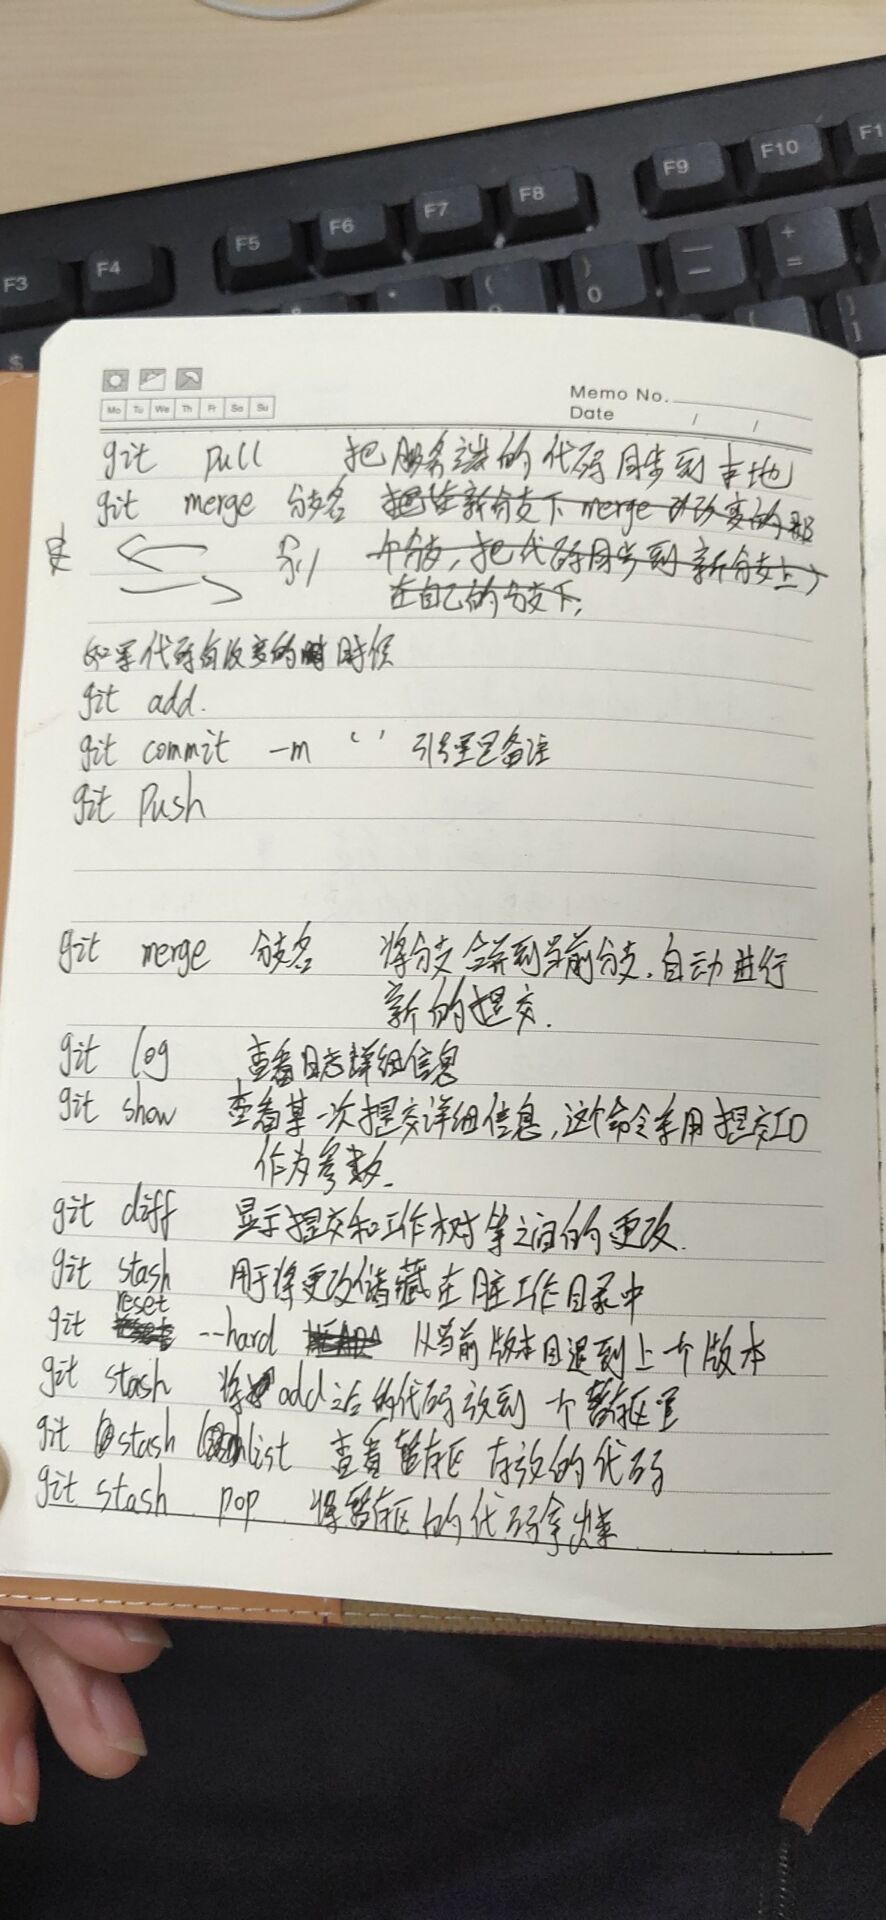 F9 F10
F5 F6 F7 F8
F3 F4
Memo No.
Mo Tu We Th Fr Sa Su
Date / /
git pull 把服务端的代码同步到本地
git merge 分支名 把在新分支下merge 改变的那
个分支,把代码同步到新分支上,
在自己的分支下,
如果代码有改变的时候
git add.
git commit -m ‘ ’ 引号里是备注
git push
git merge 分支名 将分支合并到当前分支,自动进行
新的提交.
git log 查看日志详细信息
git show 查看某一次提交详细信息,这个命令采用提交ID
作为参数.
git diff 显示提交和工作树等之间的更改.
git stash 用于将更改储藏在脏工作目录中
git reset --hard 从当前版本回退到上个版本
git stash 将add之后的代码放到一个暂存区里
git stash list 查看暂存区存放的代码
git stash pop 将暂存区的代码拿出来